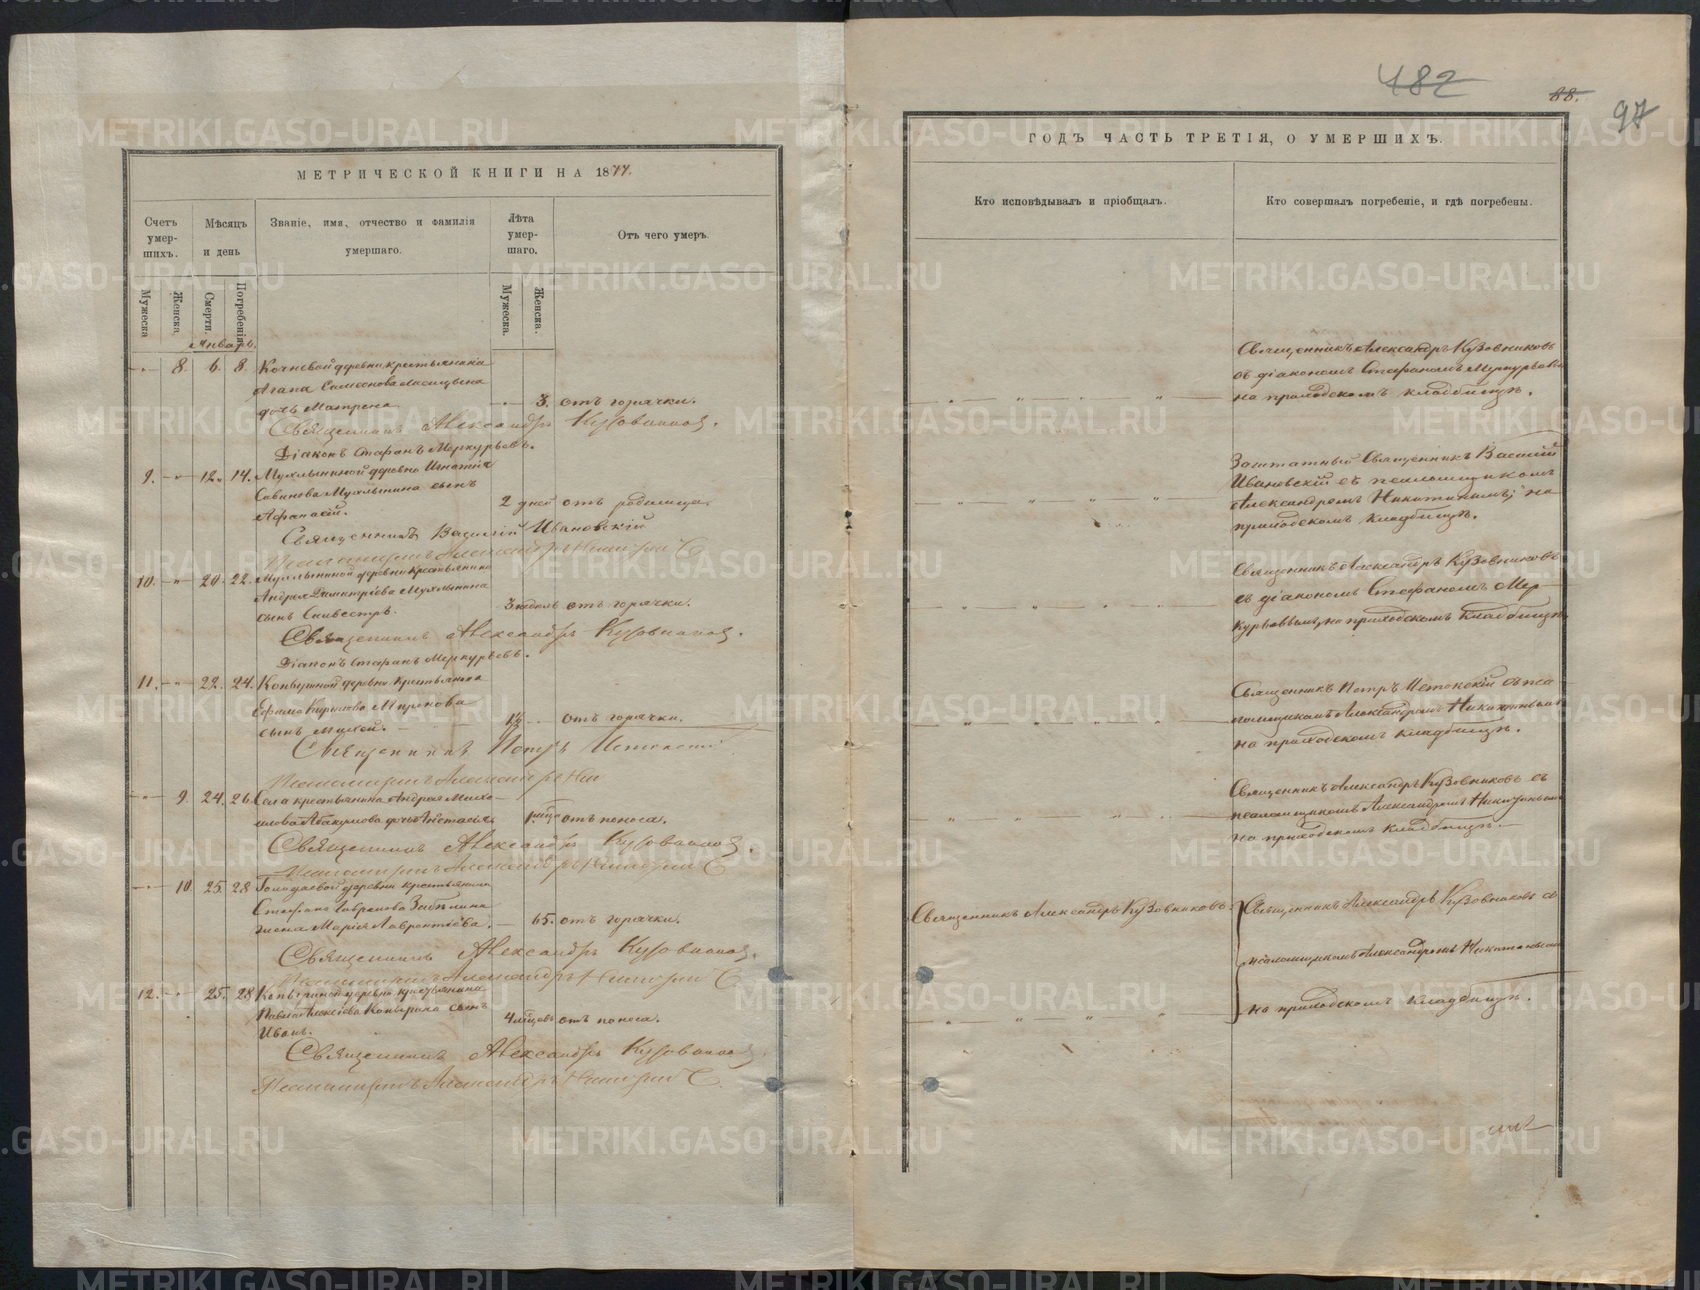 МЕТРИЧЕСКОЙ КНИГИ НА 1877.
Счетъ умер-шихъ.
Мѣсяцъ и день
Званіе, имя, отчество и фамилія умершаго.
Лѣта умер-шаго.
Отъ чего умеръ.
Мужеска
Женска
Смерти.
Погребенія
Мужеска.
Женска.
Январь.
8. 6. 8. Кочневой деревни крестьянина
Агапа Самсонова
дочь Матрена 3. отъ горячки.
Священникъ Александръ Кузовниковъ.
Діаконъ Стефанъ Меркурьевъ.
9. 12. 14. Мухлыниной деревни Игнатія
Савинова Мухлынина сынъ
Афанасій. 2 дней отъ родимца.
Священникъ Василій Ивановскій
Псаломщикъ Александръ Никитинъ
10. 20. 22. Мухлыниной деревни крестьянина
Андрея Димитріева Мухлынина
сынъ Сильвестръ. 3 недѣль отъ горячки.
Священникъ Александръ Кузовниковъ.
Діаконъ Стефанъ Меркурьевъ.
11. 22. 24. деревни крестьянина
Ефима Миронова
сынъ 1½ отъ горячки.
Священникъ Петръ Истокскій
Псаломщикъ Александръ
9. 24. 26. Села крестьянина Андрея Михай-
лова Абакумова дочь Анастасія. 1 мѣсяца отъ поноса.
Священникъ Александръ Кузовниковъ.
Псаломщикъ Александръ Никитинъ
10. 25. 28. деревни крестьянина
Стефана Гаврилова
жена Марія Лаврентіева. 65. отъ горячки.
Священникъ Александръ Кузовниковъ.
Псаломщикъ Александръ Никитинъ
12. 25. 28. деревни крестьянина
Павла Алексіева сынъ
Иванъ. 4 мѣсяцевъ отъ поноса.
Священникъ Александръ Кузовниковъ.
Псаломщикъ Александръ Никитинъ
482
88.
97
ГОДЪ ЧАСТЬ ТРЕТІЯ, О УМЕРШИХЪ.
Кто исповѣдывалъ и пріобщалъ.
Кто совершалъ погребеніе, и гдѣ погребены.
Священникъ Александръ Кузовниковъ
съ діакономъ Стефаномъ Меркурьевымъ
на приходскомъ кладбищѣ.
Заштатный Священникъ Василій
Ивановскій съ псаломщикомъ
Александромъ Никитинымъ; на
приходскомъ кладбищѣ.
Священникъ Александръ Кузовниковъ
съ діакономъ Стефаномъ Мер-
курьевымъ, на приходскомъ кладбищѣ.
Священникъ Петръ Истокскій съ пса
ломщикомъ Александромъ Никитинымъ
на приходскомъ кладбищѣ.
Священникъ Александръ Кузовниковъ съ
псаломщикомъ Александромъ Никитинымъ
на приходскомъ кладбищѣ.
Священникъ Александръ Кузовниковъ.
Священникъ Александръ Кузовниковъ съ
псаломщикомъ Александромъ Никитинымъ
на приходскомъ кладбищѣ.
METRIKI.GASO-URAL.RU